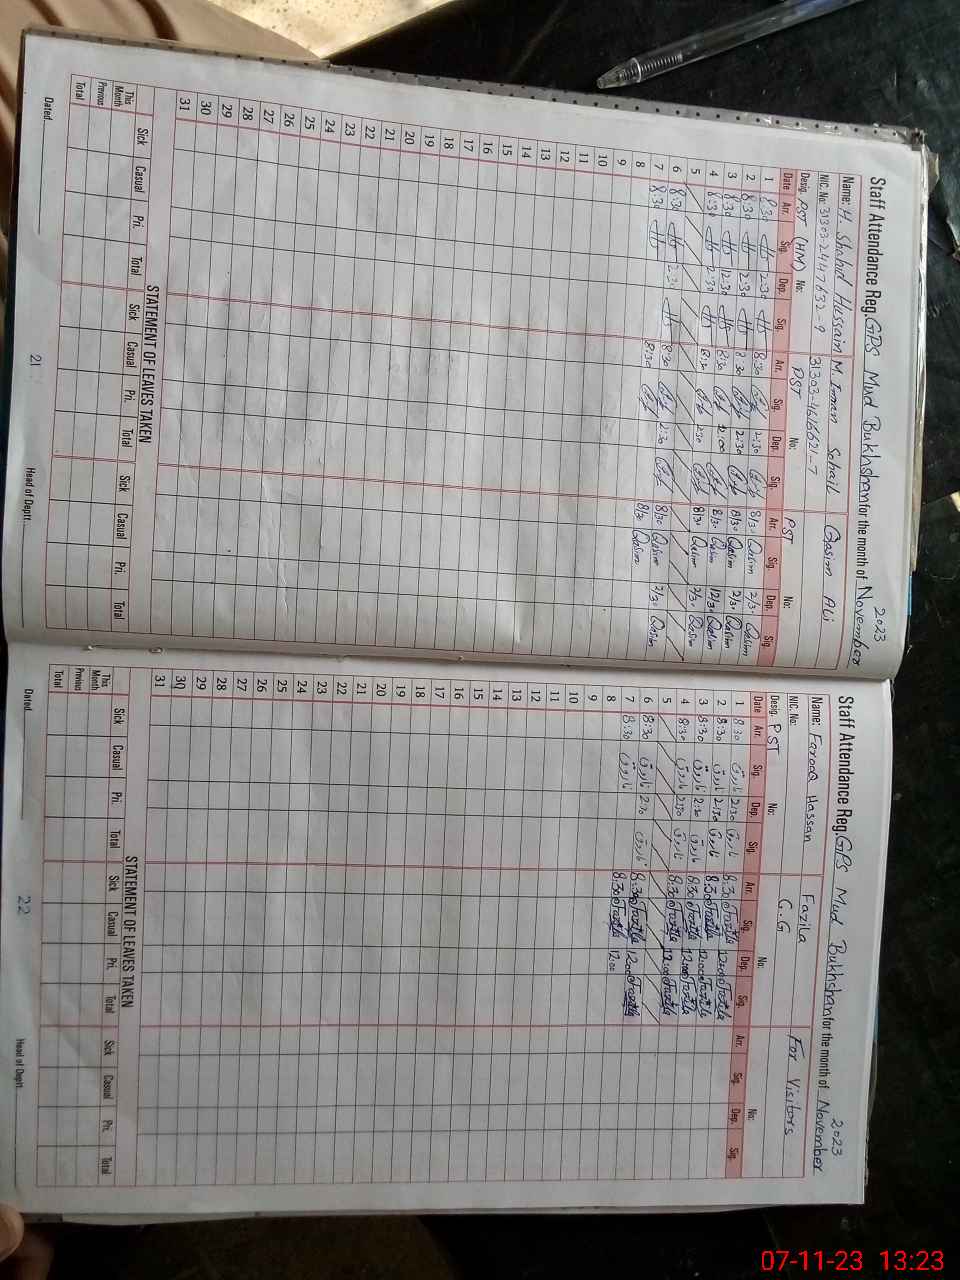 Staff Attendance Reg. GPS Mud Bukhshan for the month of November 2023
Name: H. Shahid Hussain M. Iman Sohail Qasim Ali
NIC. No: 31303-2447632-9 31303-4616621-7
Desig. PST (HM) No: PST No: PST No:
Date Arr. Sig. Dep. Sig. Arr. Sig. Dep. Sig. Arr. Sig. Dep. Sig.
1 8:30 2:30 8:30 2:30 8/30 Qasim 2/30 Qasim
2 8:30 2:30 8:30 2:30 8/30 Qasim 2/30 Qasim
3 8:30 12:30 8:30 12:00 8/30 Qasim 12/30 Qasim
4 8:30 2:30 8:30 2:30 8/30 Qasim 2/30 Qasim
5
6 8:30 2:30 8:30 2:30 8/30 Qasim 2/30 Qasim
7 8:30 8:30 8/30 Qasim
8
9
10
11
12
13
14
15
16
17
18
19
20
21
22
23
24
25
26
27
28
29
30
31
STATEMENT OF LEAVES TAKEN
Sick Casual Pri. Total Sick Casual Pri. Total Sick Casual Pri. Total
This Month
Previous
Total
Dated. 21 Head of Deptt.
Staff Attendance Reg. GPS Mud Bukhshan for the month of November 2023
Name: Farooq Hassan Fazila For Visitors
NIC. No: G.G
Desig. PST No: No: No:
Date Arr. Sig. Dep. Sig. Arr. Sig. Dep. Sig. Arr. Sig. Dep. Sig.
1 8:30 فاروق 2:30 فاروق 8:30 Fazila 12:00 Fazila
2 8:30 فاروق 2:30 فاروق 8:30 Fazila 12:00 Fazila
3 8:30 فاروق 2:30 فاروق 8:30 Fazila 12:00 Fazila
4 8:30 فاروق 2:30 فاروق 8:30 Fazila 12:00 Fazila
5
6 8:30 فاروق 2:30 فاروق 8:30 Fazila 12:00 Fazila
7 8:30 فاروق 8:30 Fazila 12:00
8
9
10
11
12
13
14
15
16
17
18
19
20
21
22
23
24
25
26
27
28
29
30
31
STATEMENT OF LEAVES TAKEN
Sick Casual Pri. Total Sick Casual Pri. Total Sick Casual Pri. Total
This Month
Previous
Total
Dated. 22 Head of Deptt.
07-11-23 13:23